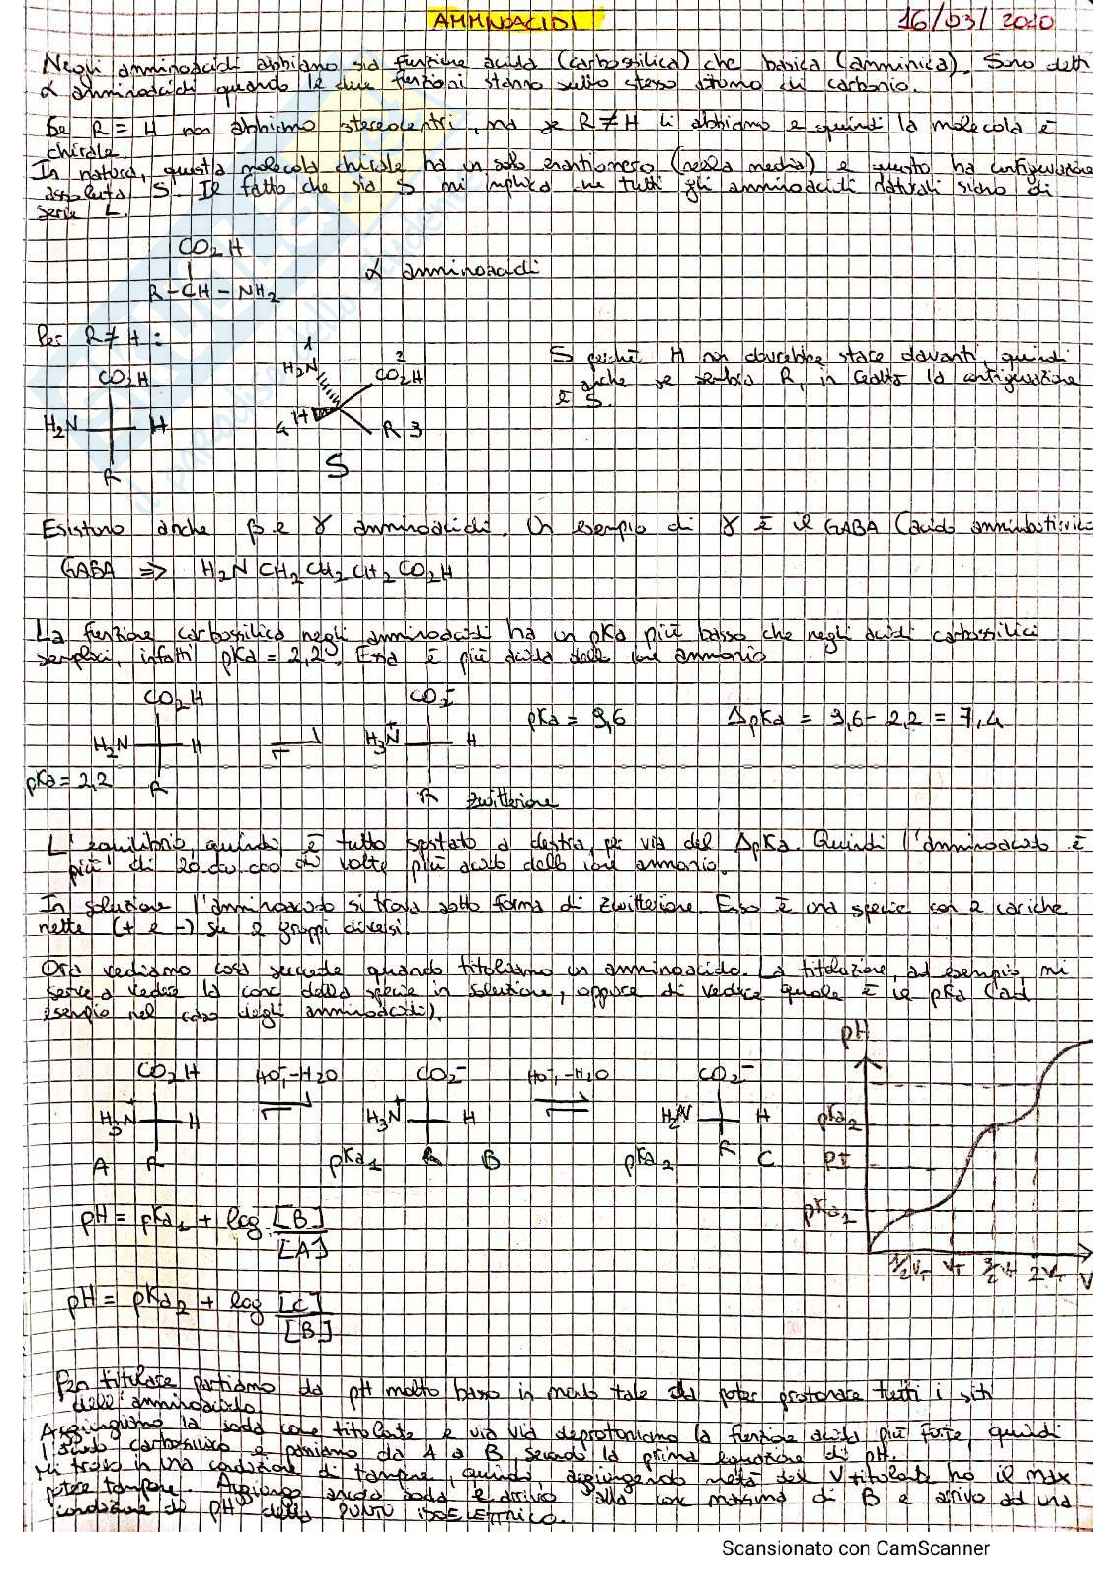 AMMINOACIDI 16/03/2020
Negli amminoacidi abbiamo sia funzione acida (carbossilica) che basica (amminica). Sono detti
α amminoacidi quando le due funzioni stanno sullo stesso atomo di carbonio.
Se R = H non abbiamo stereocentri, ma se R ≠ H li abbiamo e quindi la molecola è
chirale.
In natura, questa molecola chirale ha un solo enantiomero (nella media) e questo ha configurazione
assoluta S. Il fatto che sia S mi implica che tutti gli amminoacidi naturali siano di
serie L.
CO2H
R-CH-NH2
α amminoacidi
Per R≠H:
CO2H
H2N H
R
1
H2N
2
CO2H
4 H
R 3
S
S perché H non dovrebbe stare davanti, quindi
anche se sembra R, in realtà la configurazione
è S.
Esistono anche β e γ amminoacidi. Un esempio di γ è il GABA (acido amminobutirrico
GABA => H2N CH2 CH2 CH2 CO2H
La funzione carbossilica negli amminoacidi ha un pKa più basso che negli acidi carbossilici
semplici, infatti pKa = 2,2. Essa è più acida dello ione ammonio
CO2H
H2N H
pKa = 2,2 R
CO2-
H3N+ H
R zwitterione
pKa = 9,6 ΔpKa = 9,6 - 2,2 = 7,4
L'equilibrio, quindi, è tutto spostato a destra, per via del ΔpKa. Quindi l'amminoacido è
più di 20.000.000 di volte più acido dello ione ammonio.
In soluzione l'amminoacido si trova sotto forma di zwitterione. Esso è una specie con 2 cariche
nette (+ e -) su 2 gruppi diversi.
Ora vediamo cosa succede quando titoliamo un amminoacido. La titolazione, ad esempio, mi
serve a vedere la conc della specie in soluzione, oppure di vedere quale è il pKa (ad
esempio nel caso degli amminoacidi).
CO2H HO-, -H2O CO2- HO-, -H2O CO2-
H3N+ H H3N+ H H2N H
A R pKa1 R B pKa2 R C
pH
pKa2
PI
pKa1
1/2 VT VT 3/2 VT 2VT V
pH = pKa1 + log [B]
[A]
pH = pKa2 + log [C]
[B]
Per titolare partiamo da pH molto basso in modo tale da poter protonare tutti i siti
dell'amminoacido.
Aggiungiamo la soda come titolante e via via deprotoniamo la funzione acida più forte, quindi
l'acido carbossilico e passiamo da A a B, secondo la prima equazione di pH.
Mi trovo in una condizione di tampone, quindi, aggiungendo metà del V titolante ho il max
potere tampone. Aggiungo ancora soda e arrivo alla conc massima di B e arrivo ad una
condizione di pH detta PUNTO ISOELETTRICO.
Scansionato con CamScanner